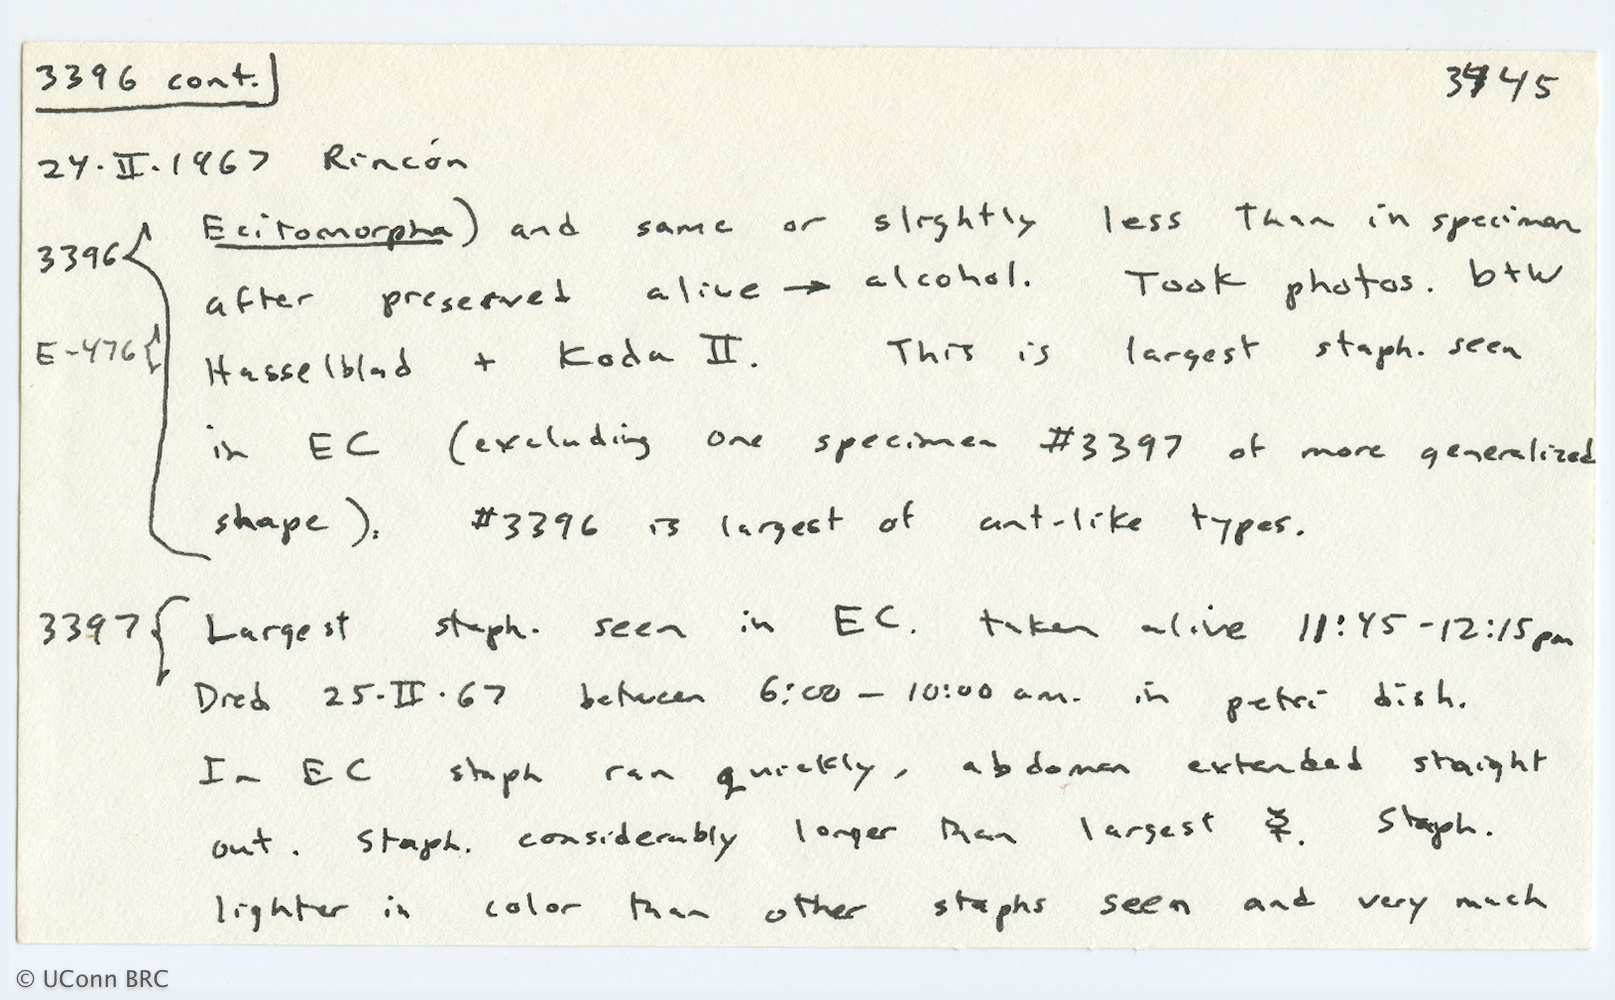 3396 cont.
3445
24·II·1967 Rincón
3396 Ecitomorpha) and same or slightly less than in specimen
after preserved alive → alcohol. Took photos. b+w
E-476 Hasselblad + Koda II. This is largest staph. seen
in EC (excluding one specimen #3397 of more generalized
shape). #3396 is largest of ant-like types.
3397 Largest staph. seen in EC. taken alive 11:45-12:15pm
Died 25·II·67 between 6:00-10:00 am. in petri dish.
In EC staph ran quickly, abdomen extended staight
out. Staph. considerably longer than largest ☿. Staph.
lighter in color than other staphs seen and very much
© UConn BRC